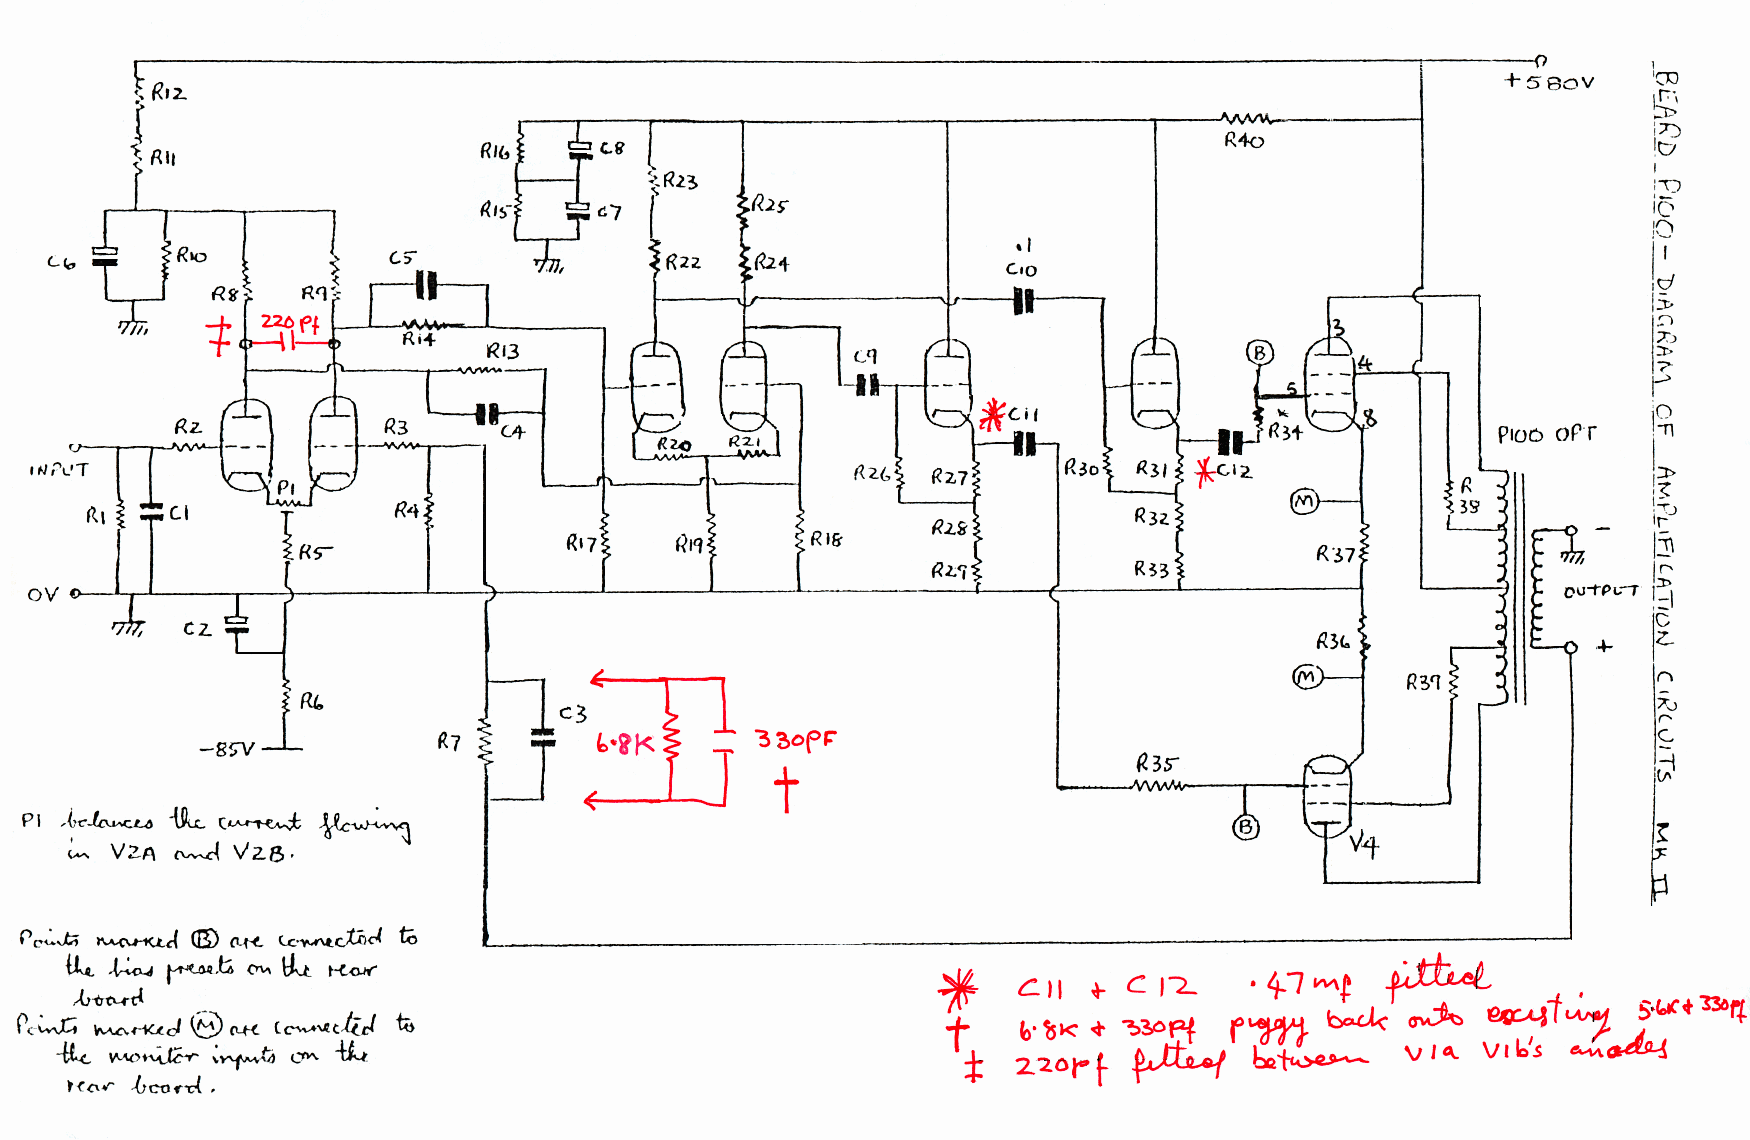 BEARD P100 - DIAGRAM OF AMPLIFICATION CIRCUITS MK II
+580V
R12
R11
R40
R16
C8
R23
R15
C7
R25
C6
R10
R22
R24
C5
.1
C10
R8
R9
‡
220Pf
R14
R13
C9
B
3
4
5
8
*
R34
C4
C11
R2
R3
INPUT
R20
R21
P1
R26
R27
R30
R31
C12
P100 OPT
M
R38
R1
C1
R4
R5
R17
R19
R18
R28
R32
R37
-
R29
R33
OUTPUT
0V
C2
R36
+
M
R39
R6
-85V
R7
C3
6.8K
330PF
†
R35
B
V4
P1 balances the current flowing
in V2A and V2B.
Points marked B are connected to
the bias presets on the rear
board
Points marked M are connected to
the monitor inputs on the
rear board.
* C11 + C12 .47mf fitted
† 6.8K + 330pf piggy back onto existing 5.6K + 330pf
‡ 220pf fitted between V1a V1b's anodes